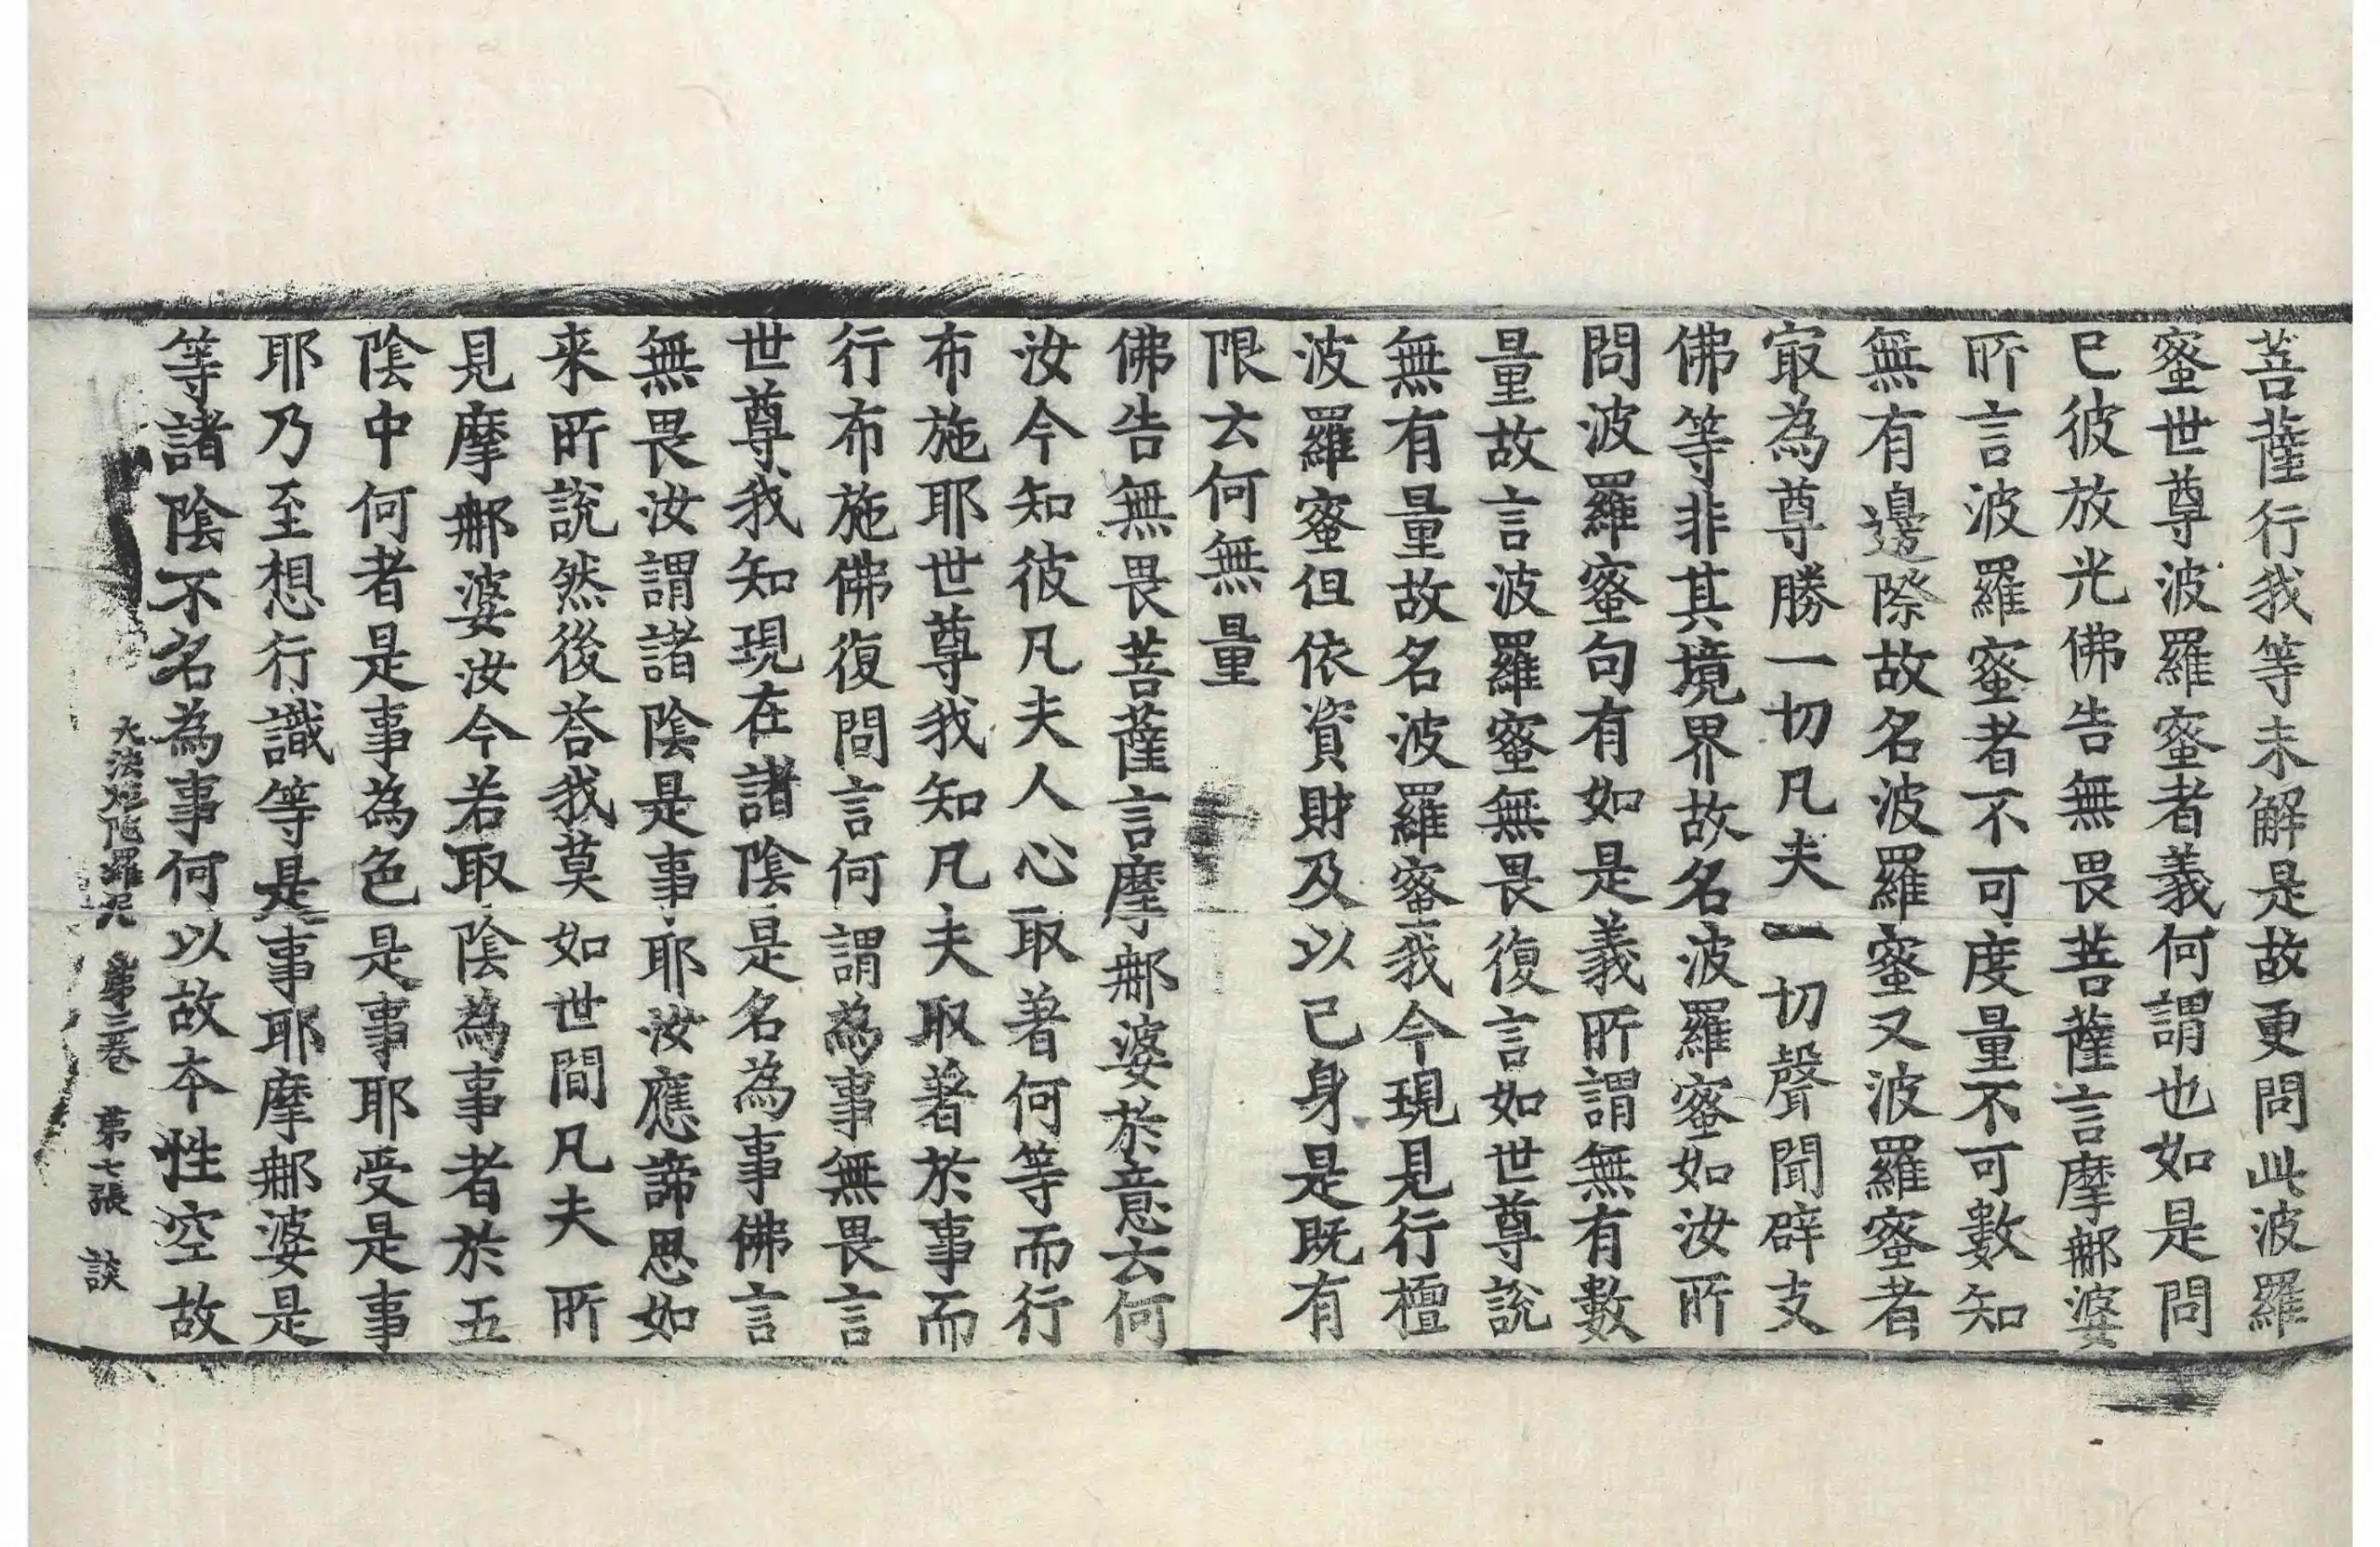 菩薩行我等未解是故更問此波羅
蜜世尊波羅蜜者義何謂也如是問
已彼放光佛告無畏菩薩言摩㖠婆
所言波羅蜜者不可度量不可數知
無有邊際故名波羅蜜又波羅蜜者
冣為尊勝一切凡夫一切聲聞辟支
佛等非其境界故名波羅蜜如汝所
問波羅蜜句有如是義所謂無有數
量故言波羅蜜無畏復言如世尊說
無有量故名波羅蜜我今現見行檀
波羅蜜但依資財及以己身是既有
限云何無量
佛告無畏菩薩言摩那婆於意云何
汝今知彼凡夫人心取著何等而行
布施耶世尊我知凡夫取著於事而
行布施佛復問言何謂為事無畏言
世尊我知現在諸陰是名為事佛言
無畏汝謂諸陰是事耶汝應諦思如
来所說然後荅我莫如世間凡夫所
見摩那婆汝今若取陰為事者於五
陰中何者是事為色是事耶受是事
耶乃至想行識等是事耶摩那婆是
等諸陰不名為事何以故本性空故
大法炬陁羅尼 第三卷 第七張 談